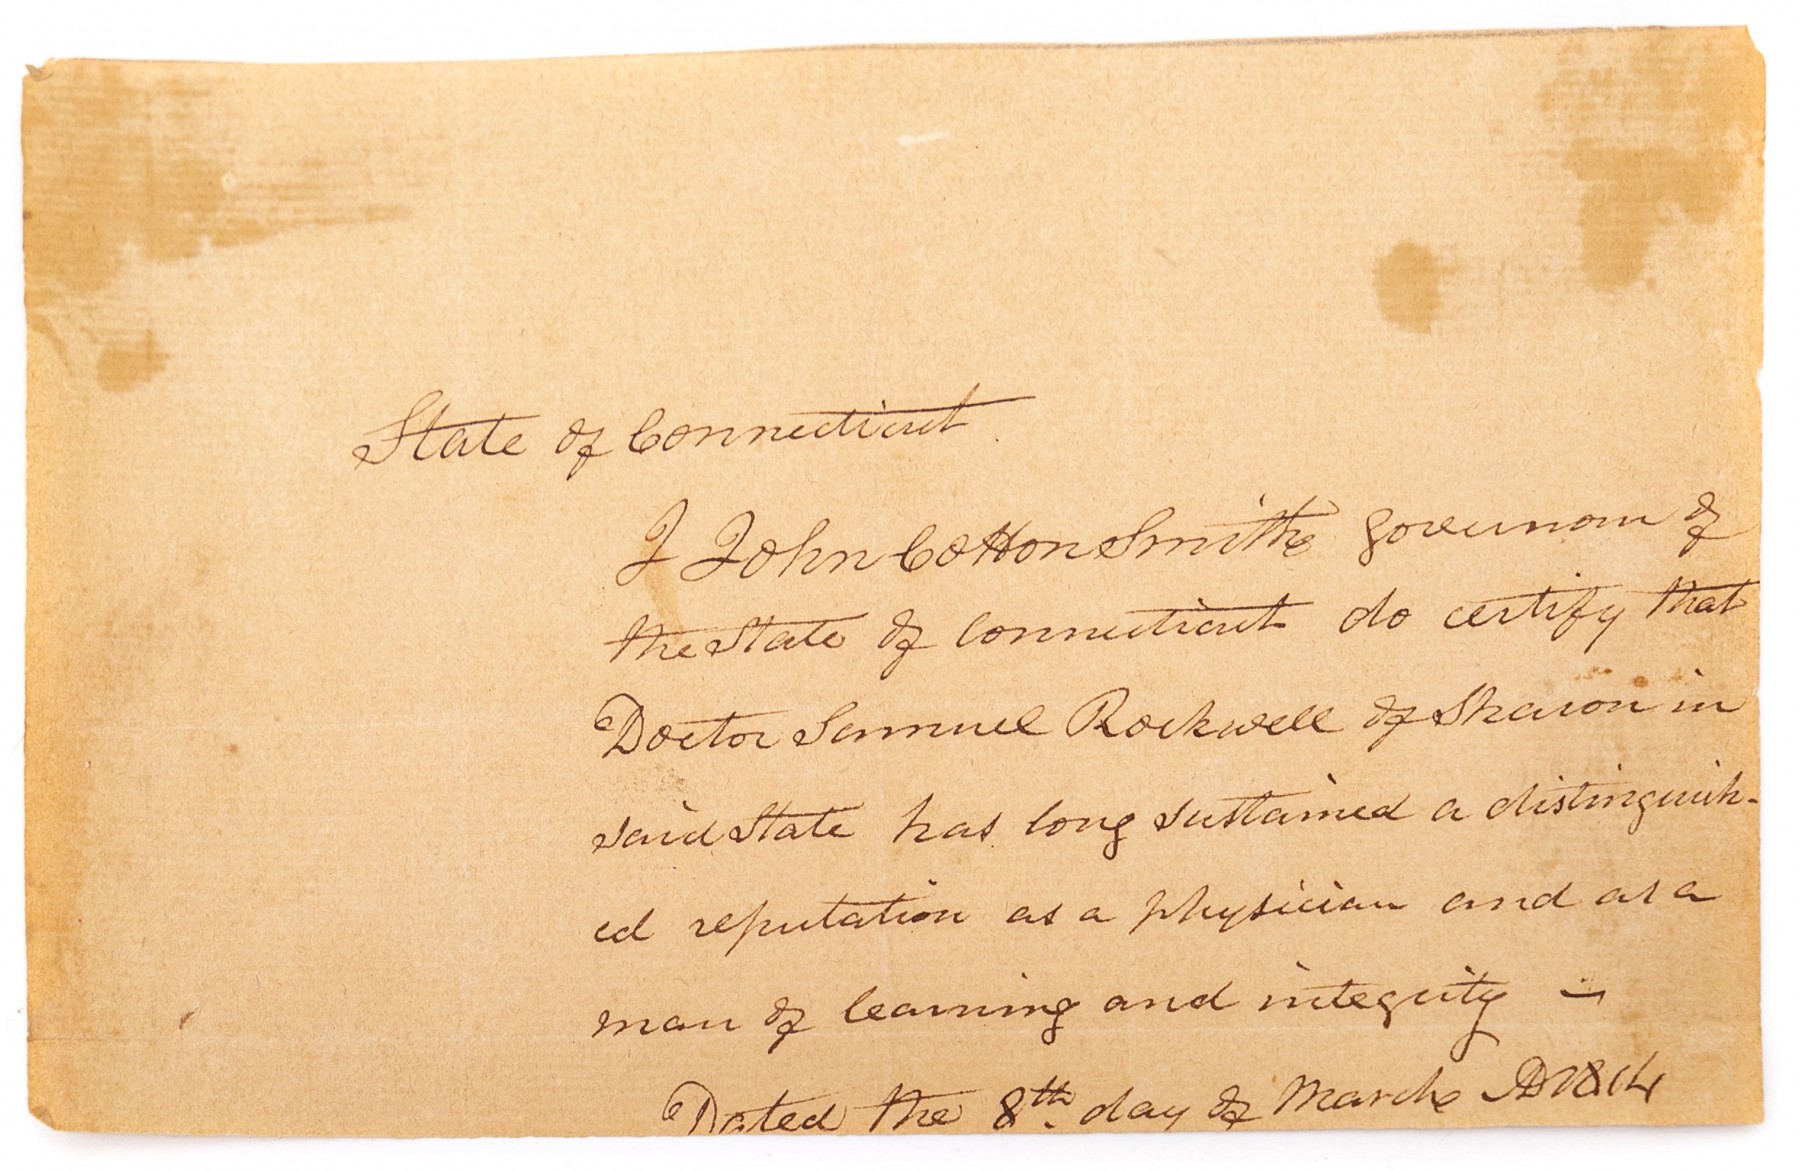 State of Connecticut
I John Cotton Smith governour of
the State of Connecticut do certify that
Doctor Samuel Rockwell of Sharon in
said State has long sustained a distinguish-
ed reputation as a physician and as a
man of learning and integrity –
Dated the 8th. day of March AD 1814